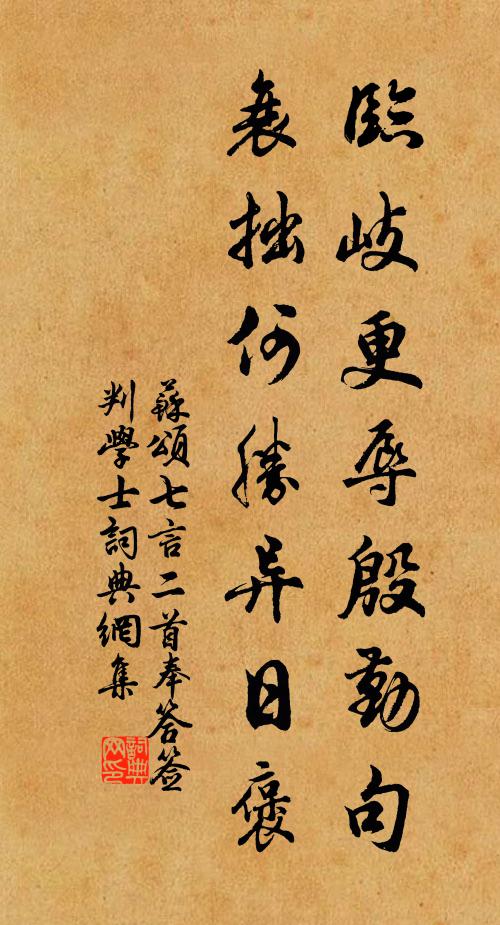 臨岐更辱殷勤句
衰拙何勝异日褒
蘇頌七言二首奉答簽
判學士詞典網集
詞典
网印